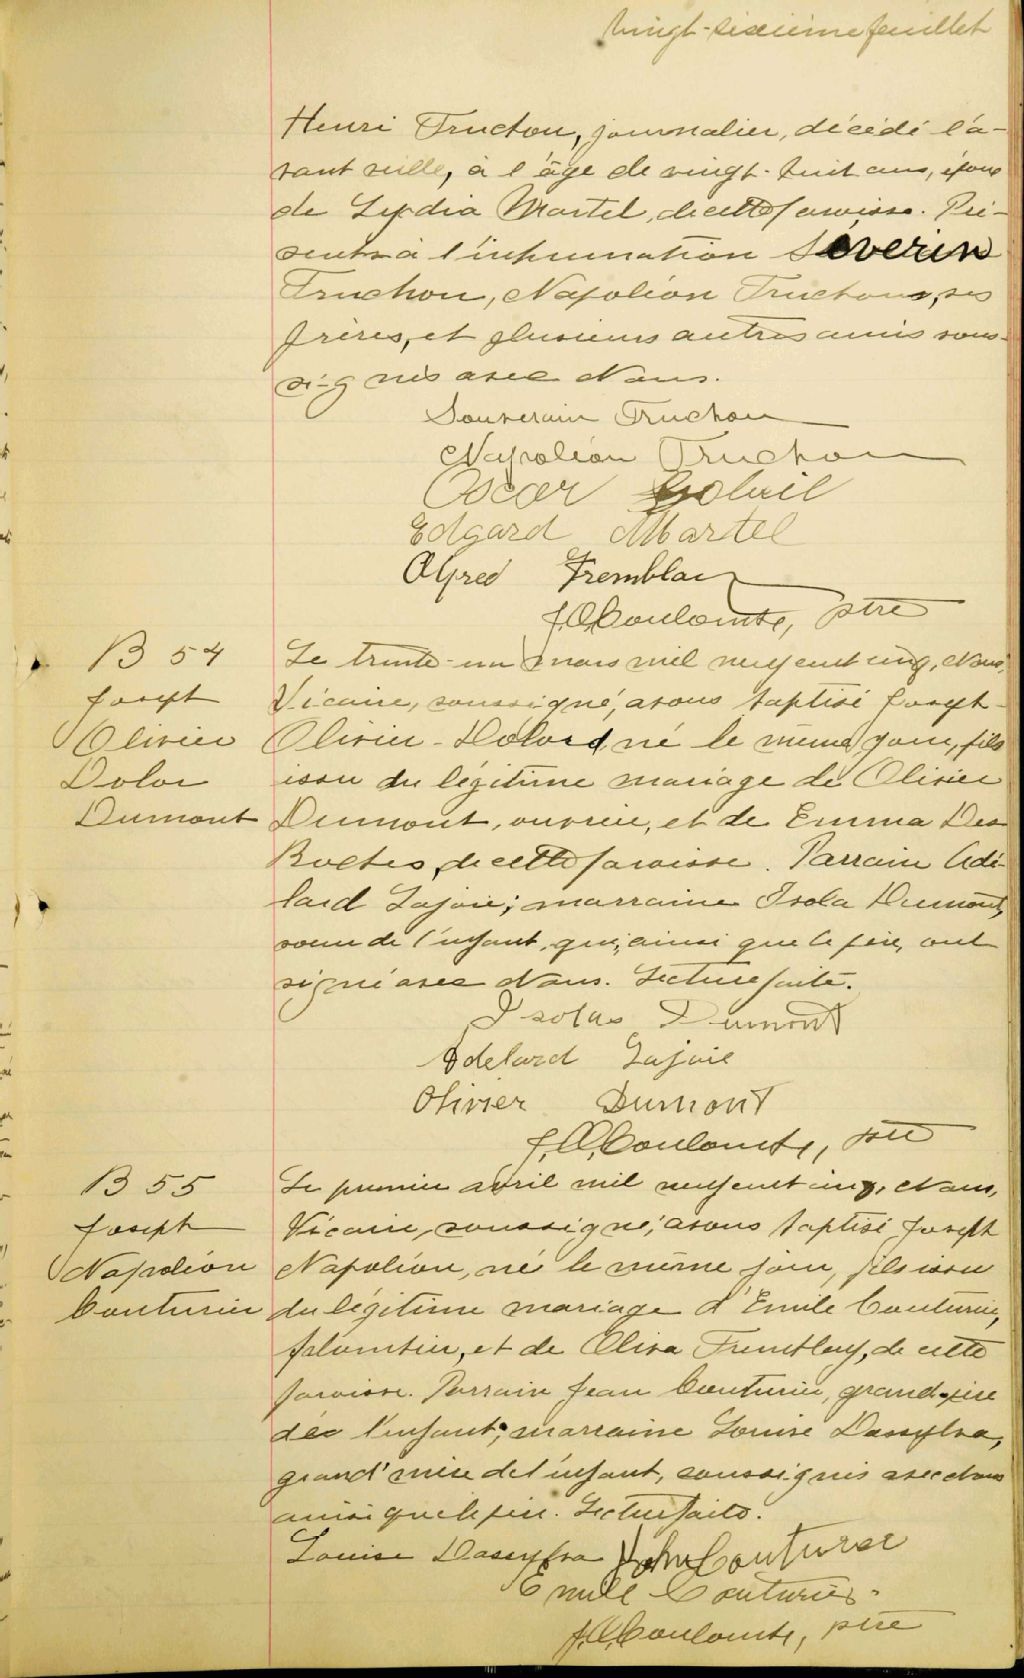 vingt-sixième feuillet
Henri Truchon, journalier, décédé l'a-
vant veille, à l'âge de vingt-huit ans, époux
de Lydia Martel, de cette paroisse. Pré-
sents à l'inhumation Séverin
Truchon, Napoléon Truchon, ses
frères, et plusieurs autres amis sous-
si-gnés avec Nous.
Souverain Truchon
Napoléon Truchon
Oscar
Edgard Martel
Alfred Tremblay
J.O.Coulombe, ptre
B 54
Joseph
Olivier
Dolor
Dumont
Le trente-un mars mil neuf cent cinq, Nous,
Vicaire, soussigné, avons baptisé Joseph-
Olivier-Dolord, né le même jour, fils
issu du légitime mariage de Olivier
Dumont, ouvrier, et de Emma Des
Roches, de cette paroisse. Parrain Adé-
lard Lajoie; marraine Isola Dumont,
soeur de l'enfant, qui, ainsi que le père, ont
signé avec Nous. Lecture faite.
Dumont
Adelard Lajoie
Olivier Dumont
J.O.Coulombe, ptre
B 55
Joseph
Napoléon
Couturier
Le premier avril mil neuf cent cinq, Nous,
Vicaire, soussigné, avons baptisé Joseph
Napoléon, né le même jour, fils issu
du légitime mariage d'Emile Couturier,
plombier, et de Oliva Tremblay, de cette
paroisse. Parrain Jean Couturier, grand-père
de l'enfant; marraine Louise Dassylva,
grand'mère de l'enfant, soussignés avec Nous
ainsi que le père. Lecture faite.
Louise Dassylva John Couturier
Emile Couturier
J.O.Coulombe, ptre